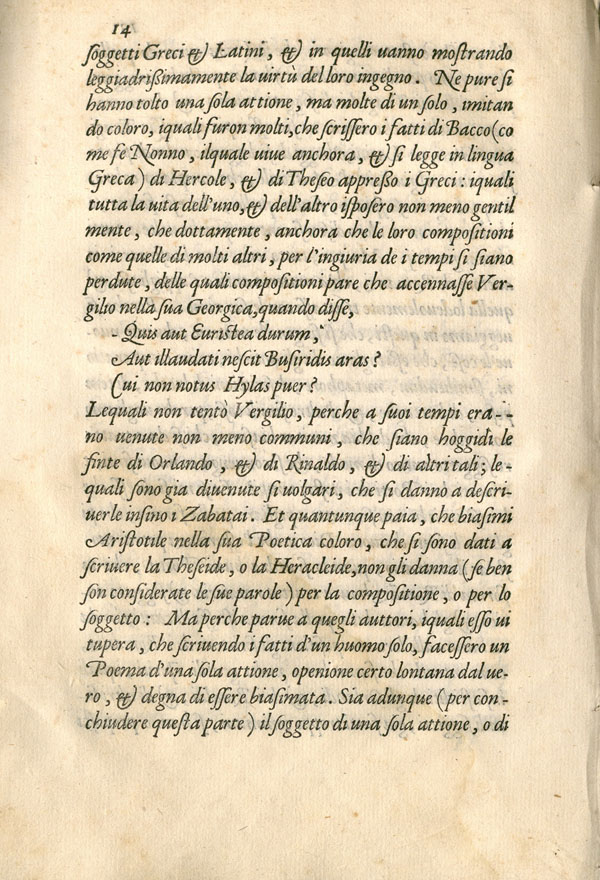 14
ſoggetti Greci & Latini, & in quelli uanno moſtrando
leggiadriſsimamente la uirtù del loro ingegno. Ne pure ſi
hanno tolto una ſola attione, ma molte di un ſolo, imitan
do coloro, iquali furon molti, che ſcriſſero i fatti di Bacco (co
me fe Nonno, ilquale uiue anchora, & ſi legge in lingua
Greca) di Hercole, & di Theſeo appreſſo i Greci: iquali
tutta la uita dell'uno, & dell'altro iſpoſero non meno gentil
mente, che dottamente, anchora che le loro compoſitioni
come quelle di molti altri, per l'ingiuria de i tempi ſi ſiano
perdute, delle quali compoſitioni pare che accennaſſe Ver-
gilio nella ſua Georgica, quando diſſe,
Quis aut Euriſtea durum,
Aut illaudati neſcit Buſiridis aras?
Cui non notus Hylas puer?
Lequali non tentò Vergilio, perche a ſuoi tempi era-
no uenute non meno communi, che ſiano hoggidì le
finte di Orlando, & di Rinaldo, & di altri tali; le-
quali ſono gia diuenute ſi uolgari, che ſi danno a deſcri-
uerle inſino i Zabatai. Et quantunque paia, che biaſimi
Ariſtotile nella ſua Poetica coloro, che ſi ſono dati a
ſcriuere la Theſeide, o la Heracleide, non gli danna (ſe ben
ſon conſiderate le ſue parole) per la compoſitione, o per lo
ſoggetto: Ma perche parue a quegli auttori, iquali eſſo ui
tupera, che ſcriuendo i fatti d'un huomo ſolo, faceſſero un
Poema d'una ſola attione, openione certo lontana dal ue-
ro, & degna di eſſere biaſimata. Sia adunque (per con-
chiudere queſta parte) il ſoggetto di una ſola attione, o di